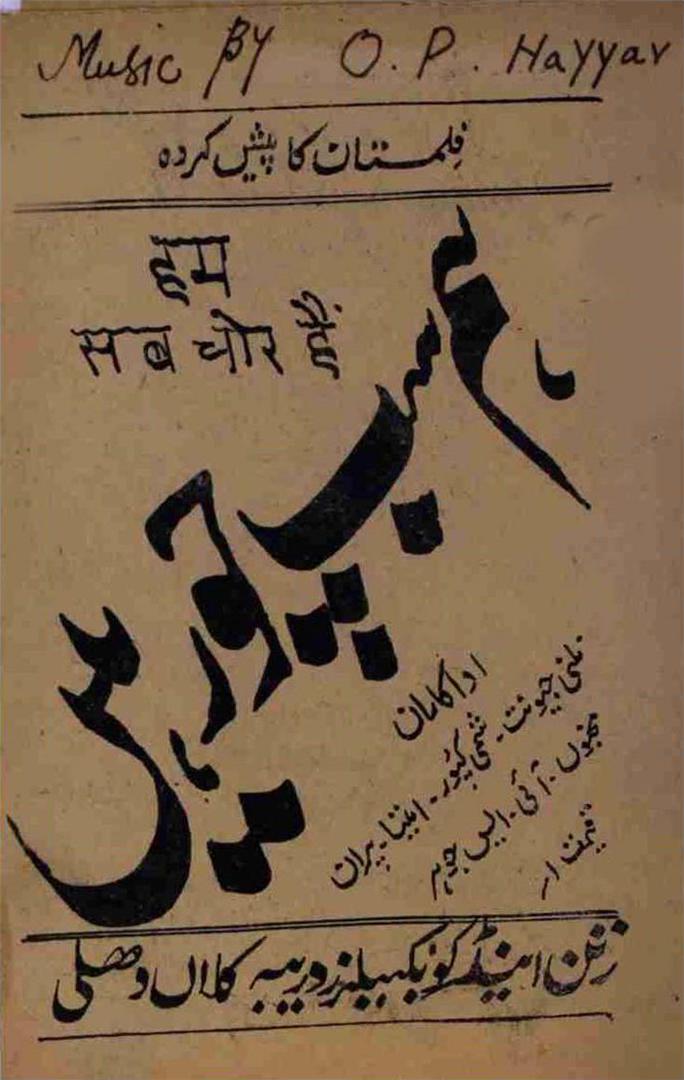 Music By O. P. Hayyar
فلمستان کا پیش کردہ
हम
सब चोर हैं
ہم سب چور ہیں
اداکاران
نلنی جیونت۔ شمی کپور۔ امیتا۔ پران
مجنوں۔ آئی۔ ایس جوہر
قیمت ۱ر
رتن اینڈ کو بکسیلرز دریبہ کلاں دھلی